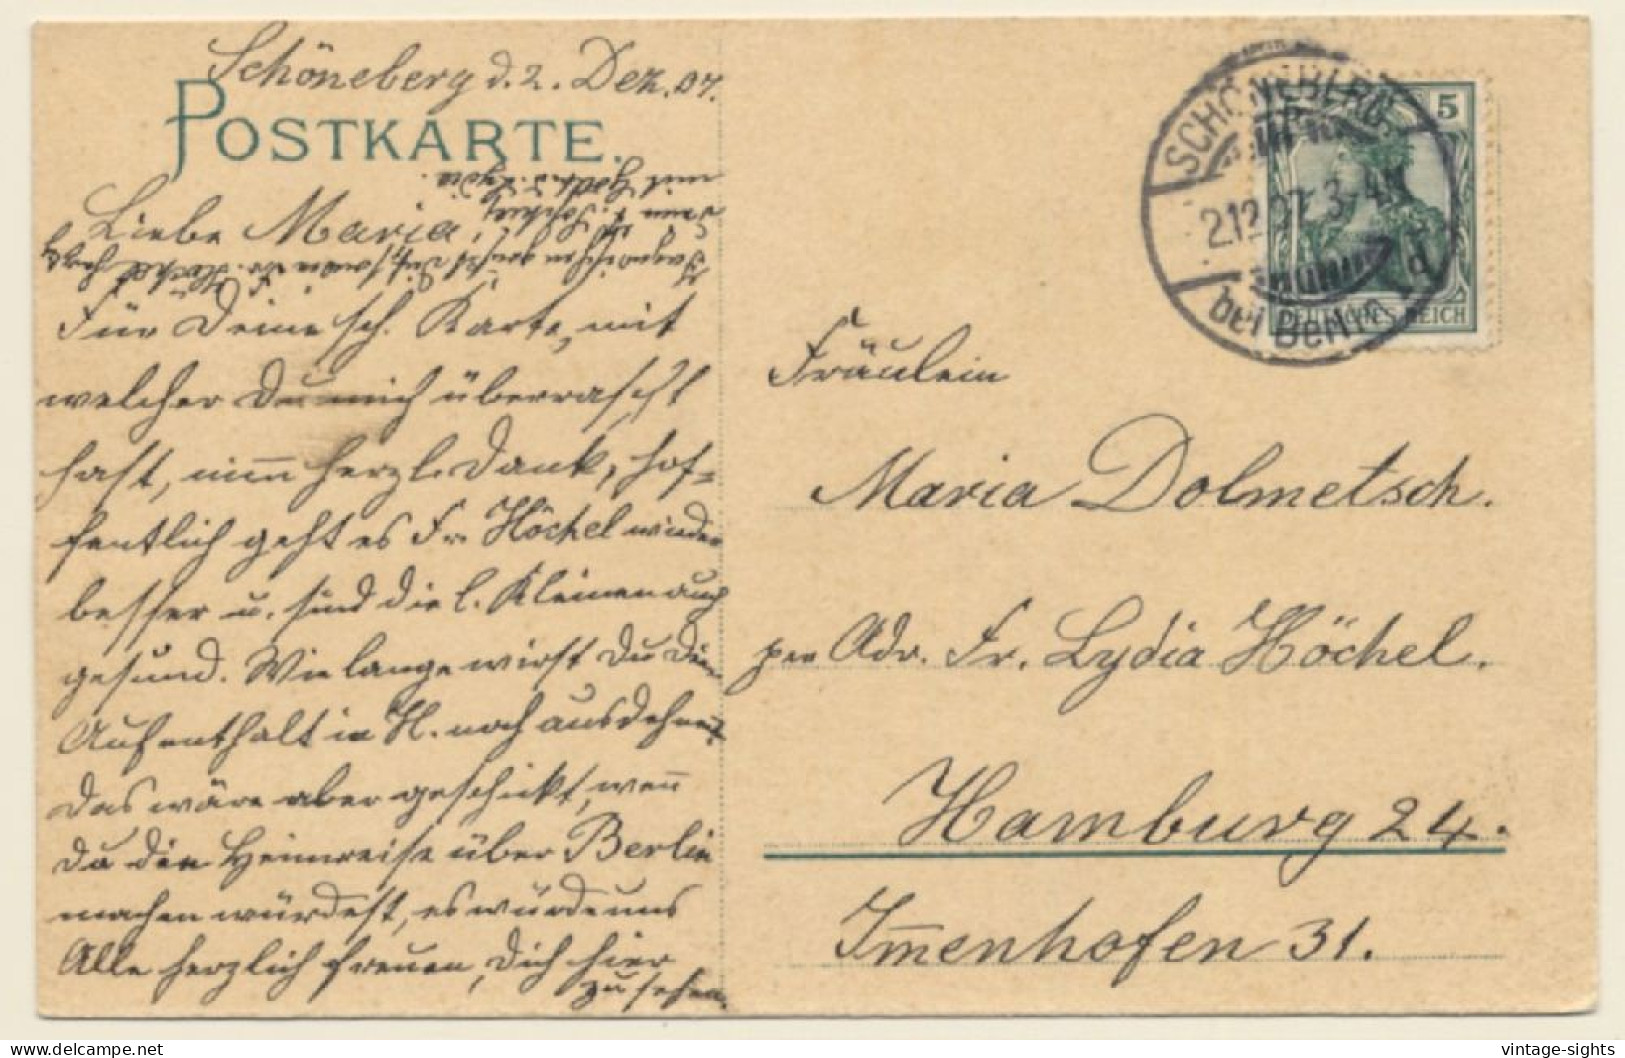 Schöneberg d. 2. Dez. 07.
POSTKARTE.
Liebe Maria,
Für Deine sch. Karte, mit
welcher Du mich überrascht
hast, nimm herzl. Dank, hof-
fentlich geht es Fr. Höchel wieder
besser u. sind die l. Kleinen auch
gesund. Wie lange wirst Du Dein
Aufenthalt in H. noch ausdehnen,
das wäre aber geschickt, wenn
Du die Heimreise über Berlin
machen würdest, es würde uns
Alle herzlich freuen, Dich hier
zu sehen.
Inzwischen grüßt Dich sowie Fr. Höchel herzl.
mit Gottl. u. Lydia.
SCHÖNEBERG
2.12.07. 3-4N
d
bei Berlin
5
DEUTSCHES REICH
Fräulein
Maria Dolmetsch.
per Adr. Fr. Lydia Höchel.
Hamburg 24.
Immenhofen 31.
delcampe.net
vintage-sights